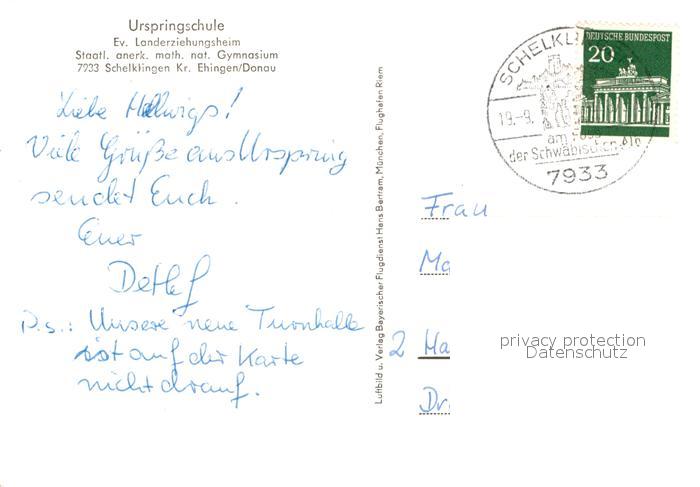 Urspringschule
Ev. Landerziehungsheim
Staatl. anerk. math. nat. Gymnasium
7933 Schelklingen Kr. Ehingen/Donau
Liebe Hellwigs!
Viele Grüße aus Urspring
sendet Euch.
Euer
Detlef
P.s.: Unsere neue Turnhalle
ist auf der Karte
nicht drauf.
Luftbild u. Verlag Bayerischer Flugdienst Hans Bertram, München, Flughafen Riem
DEUTSCHE BUNDESPOST
20
SCHELKL
19.-9.
am
der Schwäbischen Alb
7933
Frau
Ma
2 Ha
Dr
privacy protection
Datenschutz